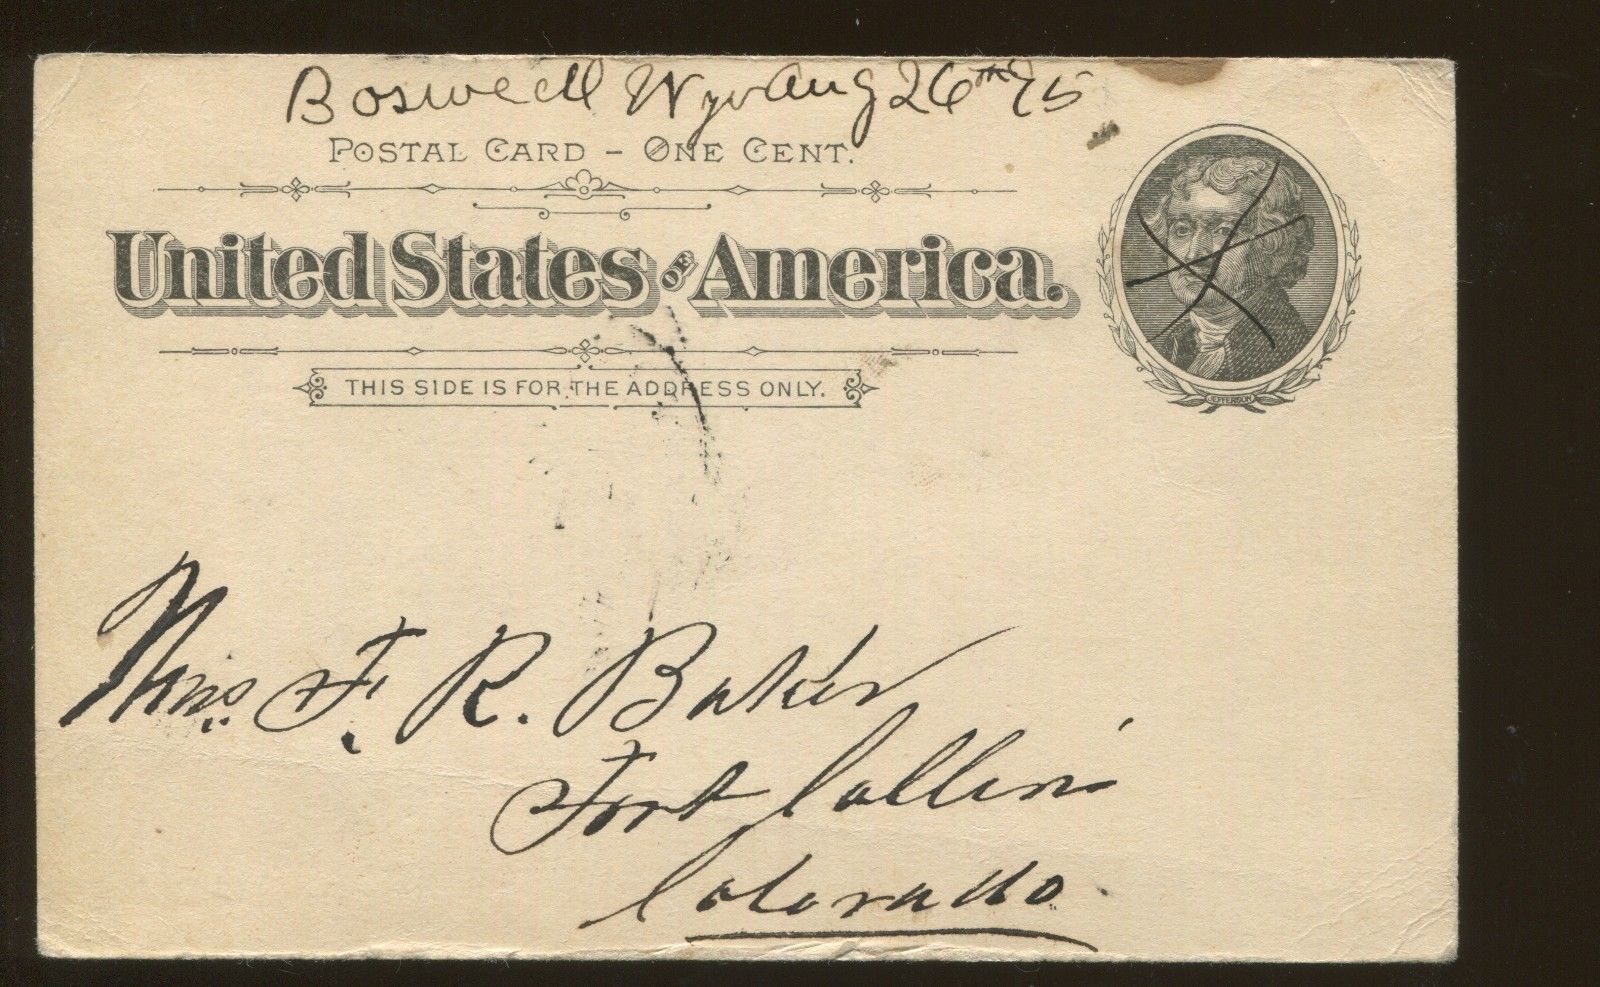 Boswell Wyo Aug 26th 95
POSTAL CARD – ONE CENT.
United States OF America.
JEFFERSON
THIS SIDE IS FOR THE ADDRESS ONLY.
Mrs. F. R. Baker
Fort Collins
Colorado.